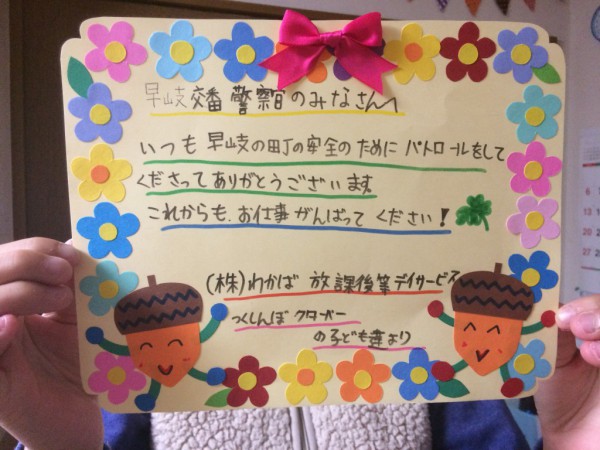 早岐交番 警察官のみなさんへ
いつも早岐の町の安全のためにパトロールをして
くださってありがとうございます
これからも、お仕事がんばってください!
(株)わかば 放課後等デイサービス
つくしんぼクローバー
の子ども達より
6
13
20
27